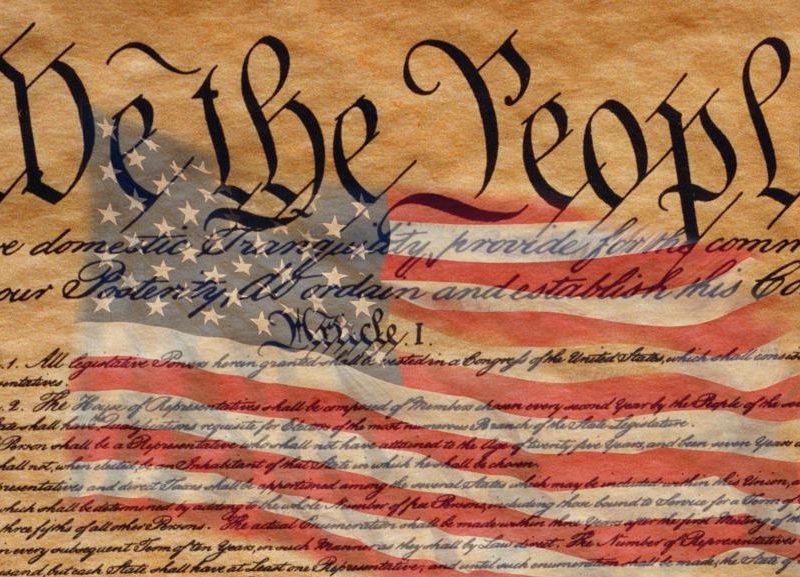 We the People
e domestic Tranquility, provide for the comm
our Posterity, do ordain and establish this Co
Article. I.
.1. All legislative Powers herein granted shall be vested in a Congress of the United States, which shall consist
sentatives.
. 2. The House of Representatives shall be composed of Members chosen every second Year by the People of the sev
ate shall have Qualifications requisite for Electors of the most numerous Branch of the State Legislature.
Person shall be a Representative who shall not have attained to the Age of twenty five Years, and been seven Years a
shall not, when elected, be an Inhabitant of that State in which he shall be chosen.
presentatives and direct Taxes shall be apportioned among the several States which may be included within this Union, a
which shall be determined by adding to the whole Number of free Persons, including those bound to Service for a Term of
three fifths of all other Persons. The actual Enumeration shall be made within three Years after the first Meeting of th
n every subsequent Term of ten Years, in such Manner as they shall by Law direct. The Number of Representatives
usand, but each State shall have at Least one Representative; and until such enumeration shall be made, the State of